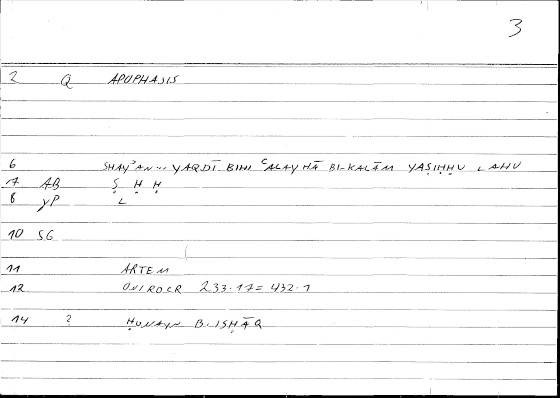 3
2 Q APOPHASIS
6 SHAYʾAN... YAQḌĪ BIHI ʿALAYHĀ BI-KALĀM YAṢIḤḤU LAHU
7 AB Ṣ Ḥ Ḥ
8 yP L
10 SG
11 ARTEM
12 ONIROCR 233.17 = 432.1
14 ? ḤUNAYN B. ISḤĀQ